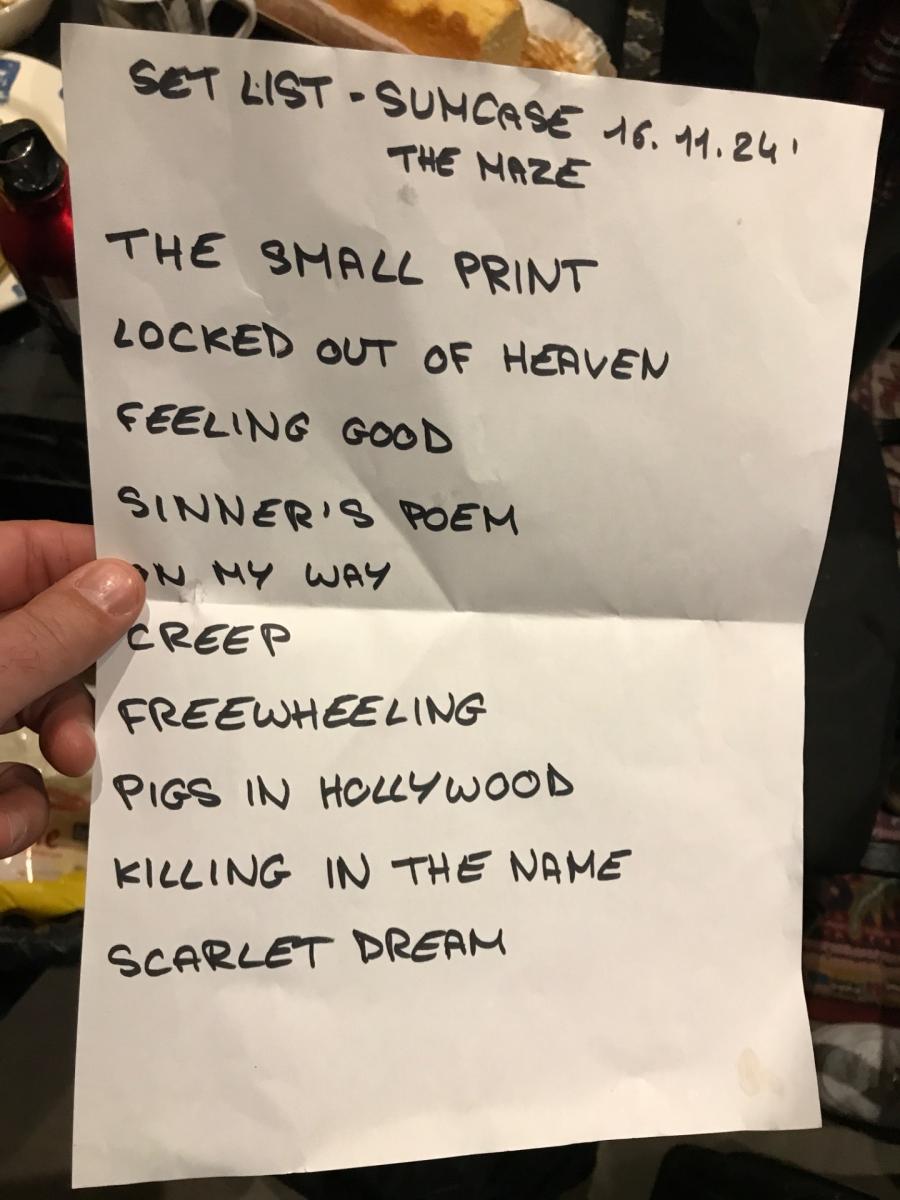 SET LIST - SUMCASE 16.11.24'
THE MAZE
THE SMALL PRINT
LOCKED OUT OF HEAVEN
FEELING GOOD
SINNER'S POEM
ON MY WAY
CREEP
FREEWHEELING
PIGS IN HOLLYWOOD
KILLING IN THE NAME
SCARLET DREAM